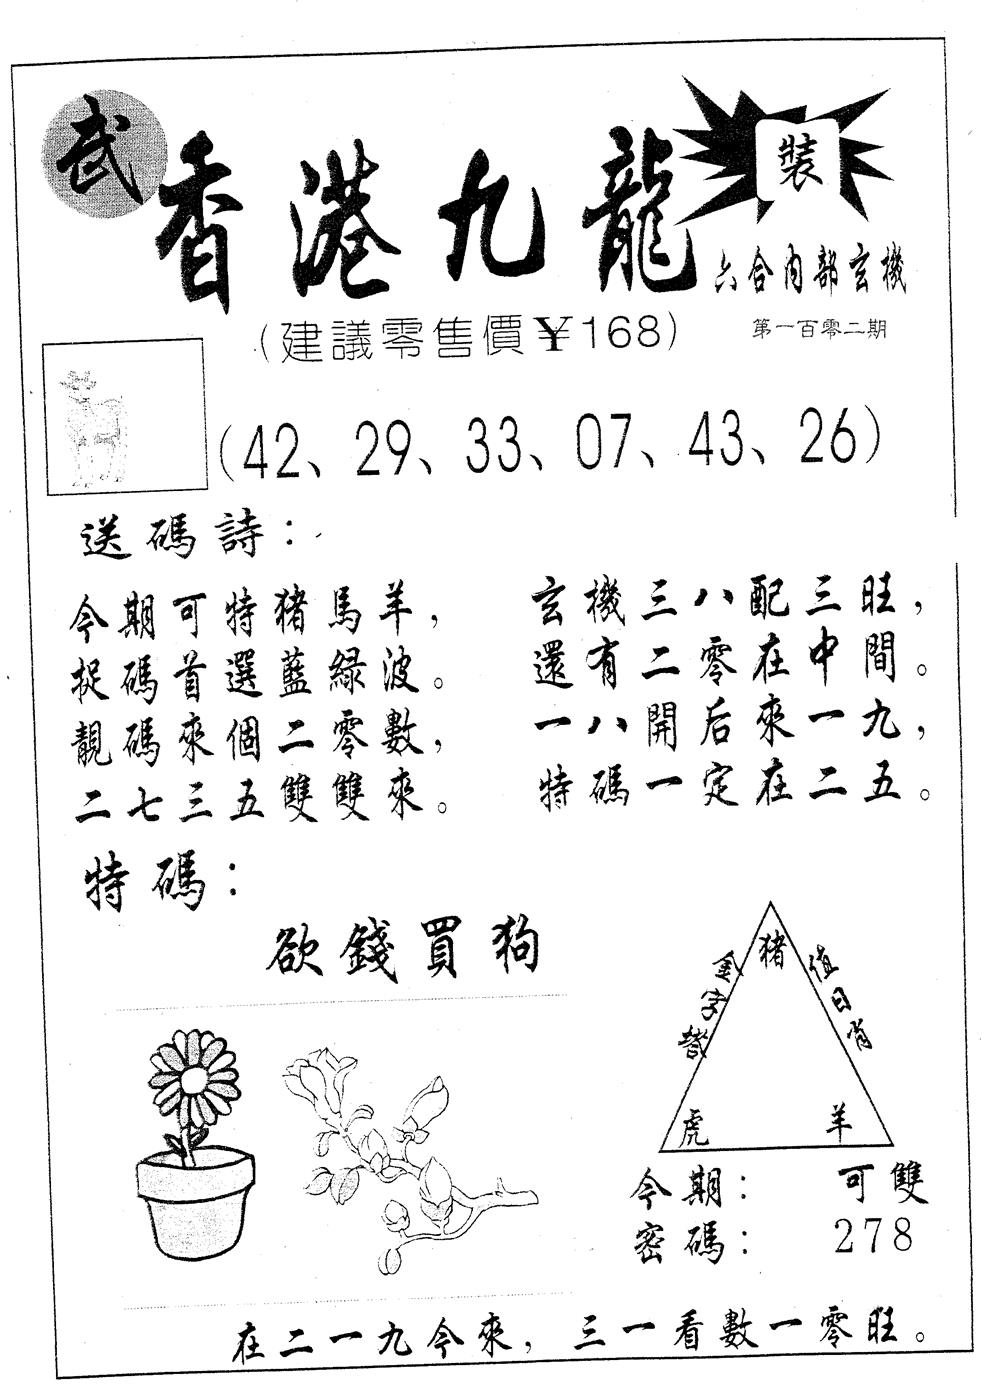 武
香港九龍
裝
六合內部玄機
(建議零售價¥168)
第一百零二期
(42、29、33、07、43、26)
送碼詩：
今期可特猪馬羊，
捉碼首選藍緑波。
靚碼來個二零數，
二七三五雙雙來。
玄機三八配三旺，
還有二零在中間。
一八開后來一九，
特碼一定在二五。
特碼：
欲錢買狗
猪
金字
值日肖
虎
羊
今期： 可雙
密碼： 278
在二一九今來，三一看數一零旺。